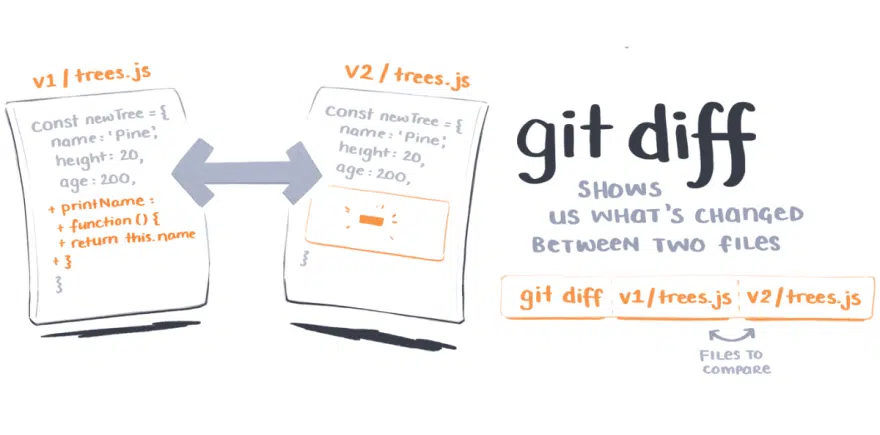 v1/trees.js
const newTree = {
name: 'Pine',
height: 20,
age: 200,
+ printName:
+ function () {
+ return this.name
+ }
}
v2/trees.js
const newTree = {
name: 'Pine',
height: 20,
age: 200,
}
git diff
SHOWS
US WHAT'S CHANGED
BETWEEN TWO FILES
git diff v1/trees.js v2/trees.js
FILES TO
COMPARE